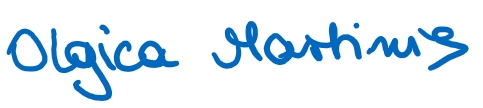 Olgica Martinis